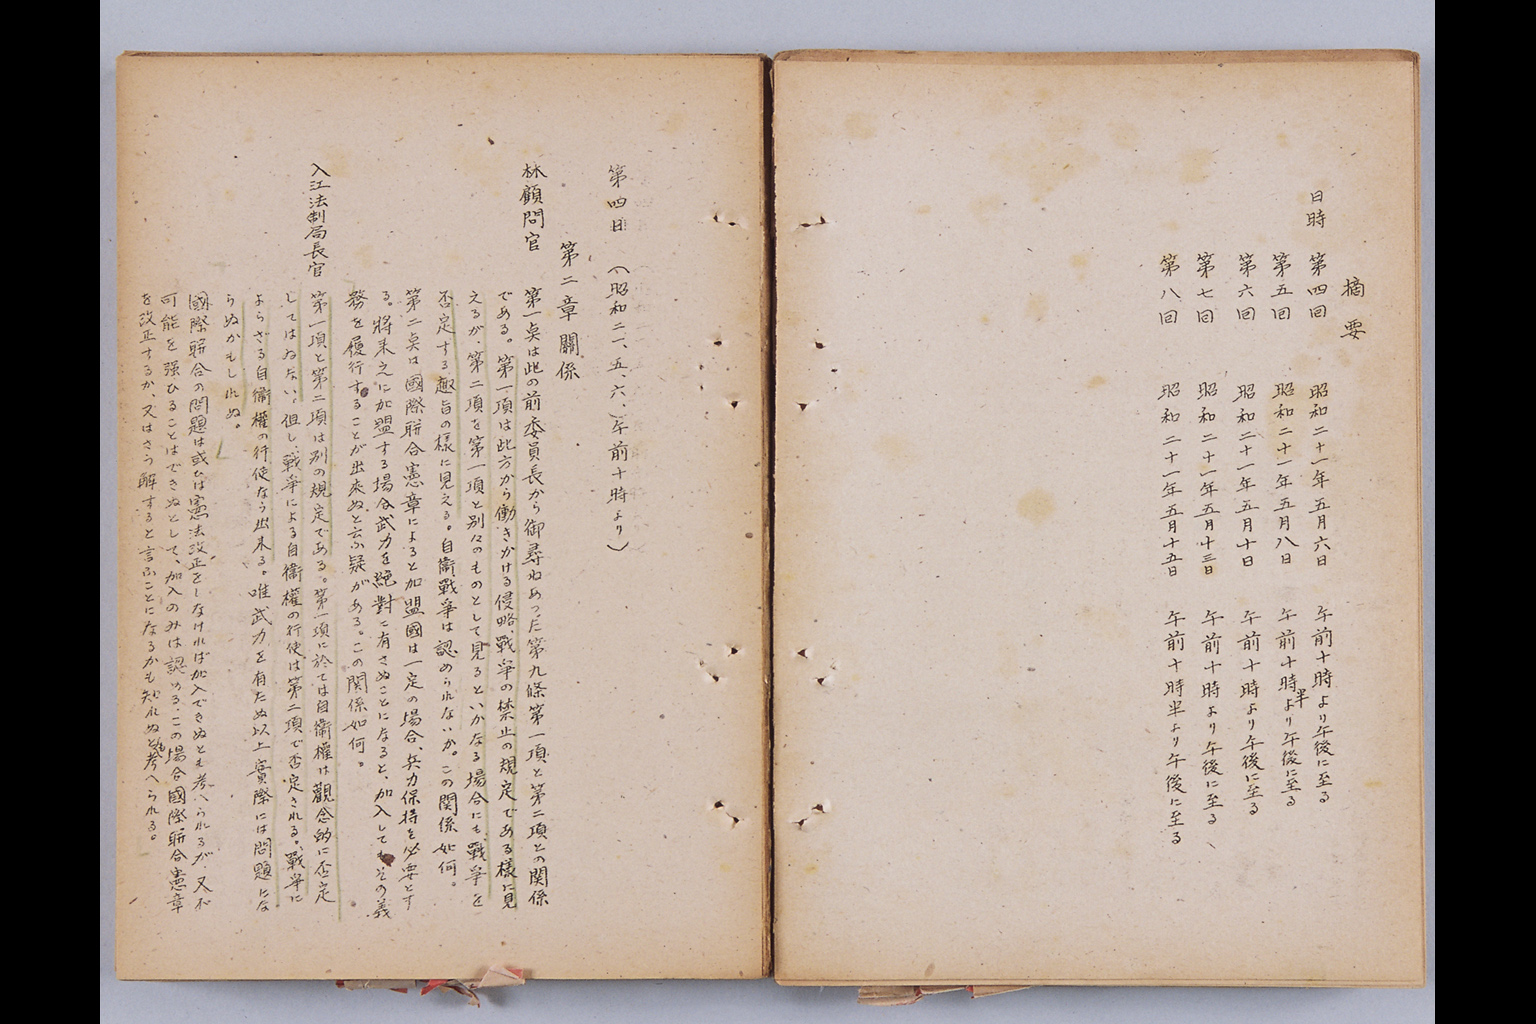 摘要
日時 第四回 昭和二十一年五月六日 午前十時より午後に至る
第五回 昭和二十一年五月八日 午前十時半より午後に至る
第六回 昭和二十一年五月十日 午前十時より午後に至る
第七回 昭和二十一年五月十三日 午前十時より午後に至る
第八回 昭和二十一年五月十五日 午前十時半より午後に至る
第四日(昭和二一、五、六、午前十時より)
第二章關係
林顧問官 第一奌は此の前委員長から御尋ねあつた第九條第一項と第二項との関係
である。第一項は此方から働きかける侵略戰爭の禁止の規定である樣に見
えるが、第二項を第一項と別々のものとして見るといかなる場合にも戰爭を
否定する趣旨の樣に見える。自衞戰爭は認められないか。この関係如何。
第二奌は國際聯合憲章によると加盟國は一定の場合、兵力保持を必要とす
る。將来之に加盟する場合武力を絶對に有さぬことになると、加入してもその義
務を履行することが出來ぬと云ふ疑がある。この関係如何。
入江法制局長官 第一項と第二項は別の規定である。第一項に於ては自衞權は觀念的に否定
してはゐない、但し、戰爭による自衞權の行使は第二項で否定される。戰爭に
よらざる自衞權の行使なら出来る。唯武力を有たぬ以上實際には問題にな
らぬかもしれぬ。
國際聯合の問題は或ひは憲法改正をしなければ加入できぬとも考へられるが、又不
可能を强ひることはできぬとして、加入のみは認める、この場合國際聯合憲章
を改正するか、又はさう解すると言ふことになるかも知れぬとも考へられる。